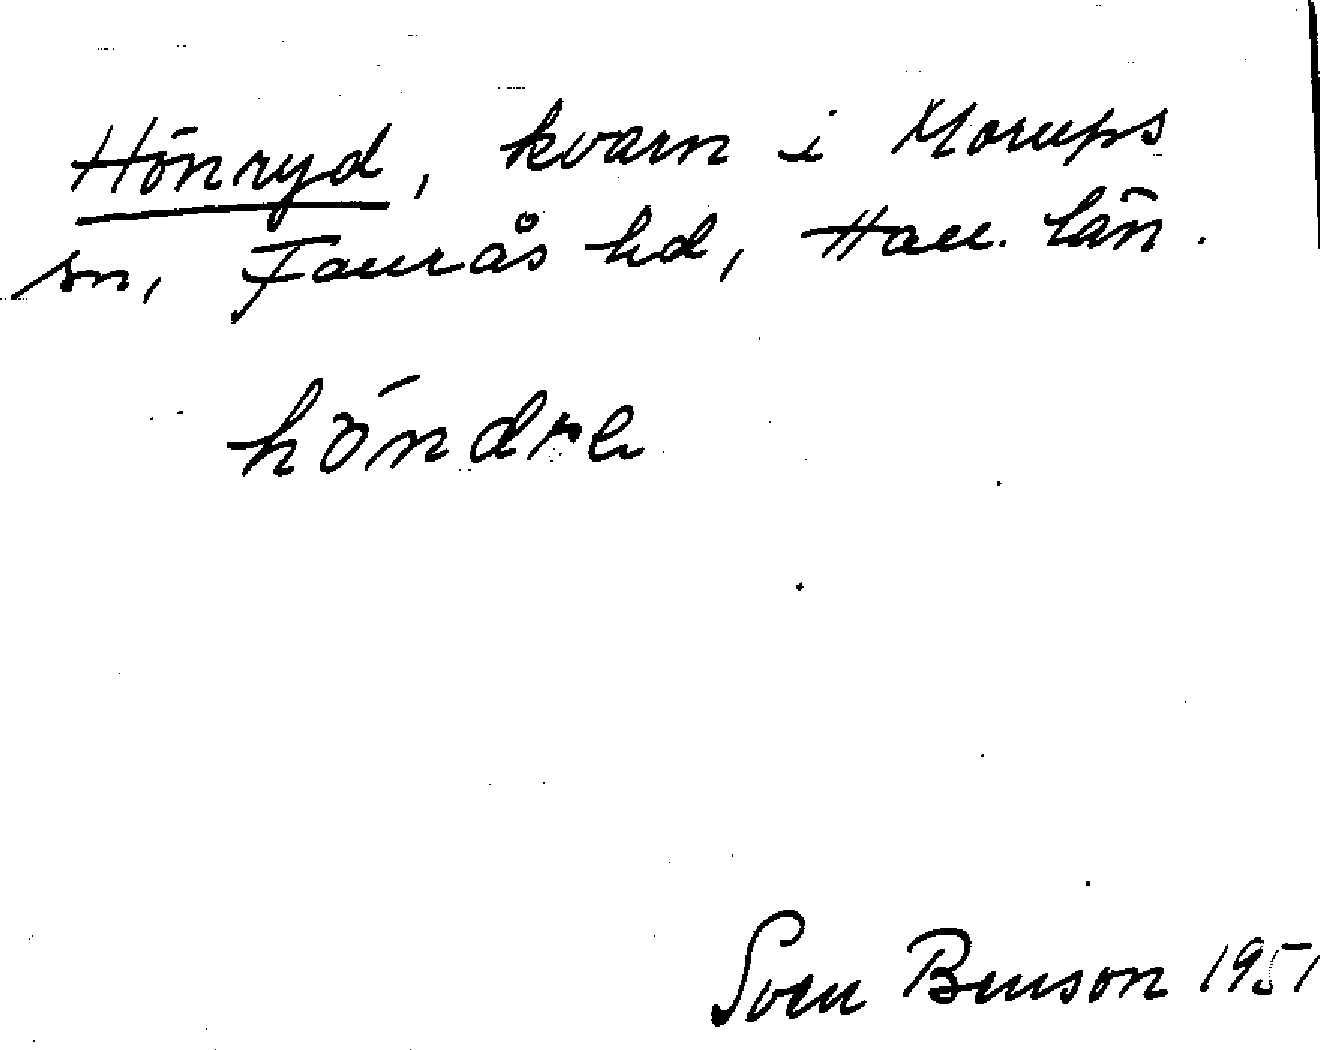 Hönryd, kvarn i Morups
sn, Faurås hd, Hall. län.
höndre
Sven Benson 1951